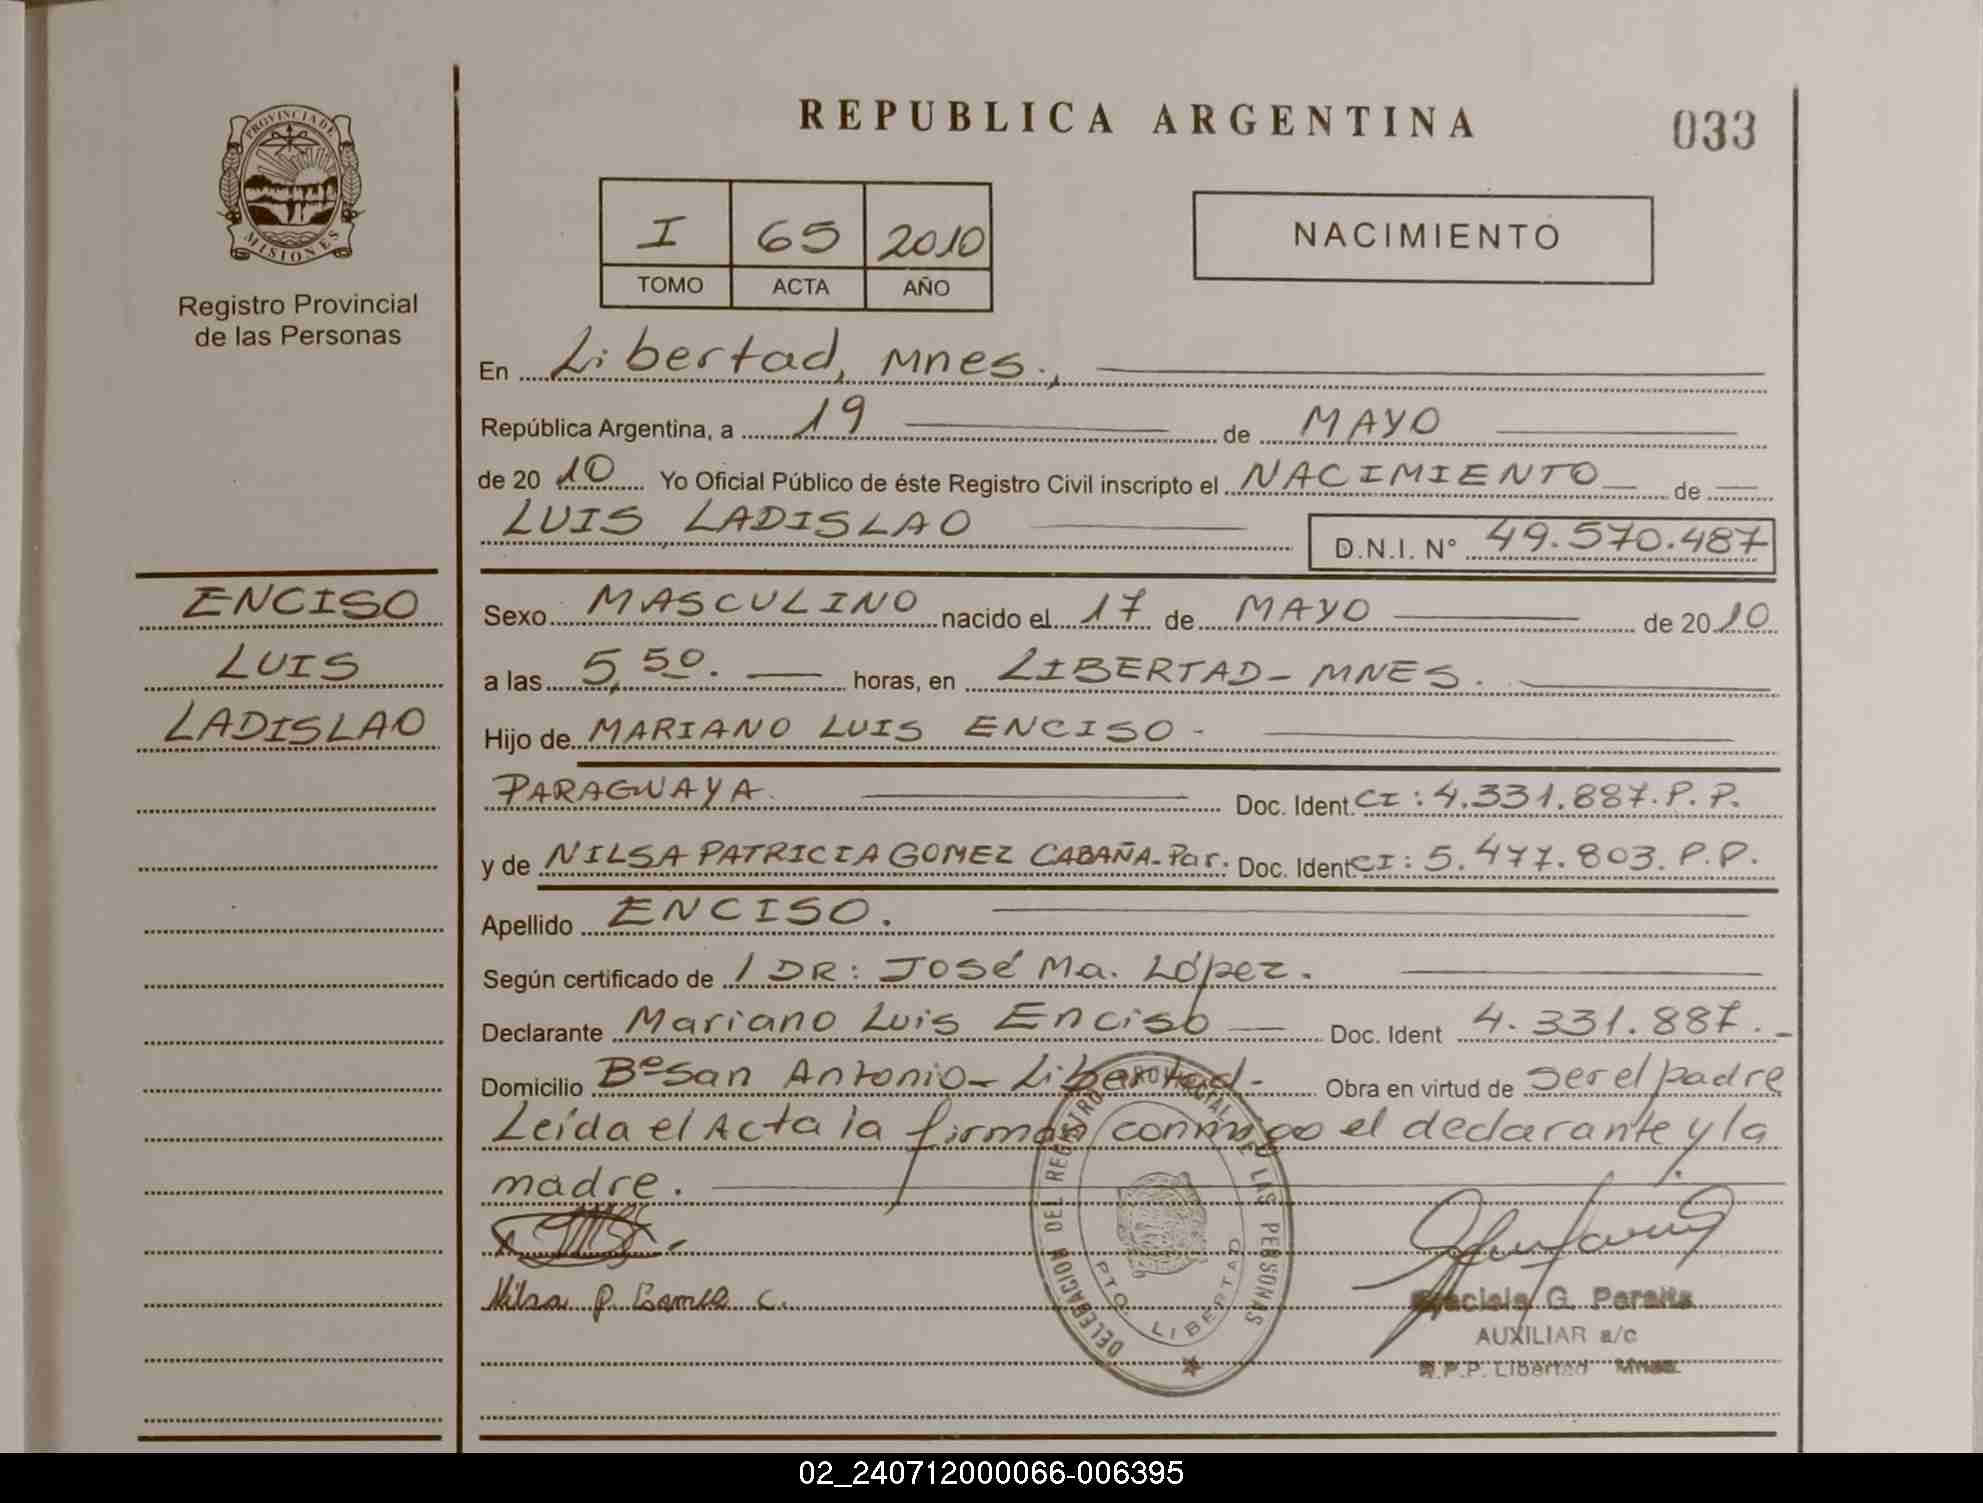 PROVINCIA DE
MISIONES
Registro Provincial
de las Personas
REPUBLICA ARGENTINA
033
I 65 2010
TOMO ACTA AÑO
NACIMIENTO
En Libertad, Mnes.,
República Argentina, a 19 de MAYO
de 2010 Yo Oficial Público de éste Registro Civil inscripto el NACIMIENTO de
LUIS LADISLAO D.N.I. N° 49.570.487
ENCISO
LUIS
LADISLAO
Sexo MASCULINO nacido el 17 de MAYO de 2010
a las 5,50. horas, en LIBERTAD - MNES.
Hijo de MARIANO LUIS ENCISO -
PARAGUAYA. Doc. Ident. CI: 4.331.887. P. P.
y de NILSA PATRICIA GOMEZ CABAÑA - Par. Doc. Ident CI: 5.477.803. P.P.
Apellido ENCISO.
Según certificado de / DR: José Ma. López.
Declarante Mariano Luis Enciso Doc. Ident 4.331.887.
Domicilio B° San Antonio - Libertad - Obra en virtud de ser el padre
Leída el Acta la firman conmigo el declarante y la
madre.
Nilsa P. Gomez C.
DELEGACION DEL REGISTRO PROVINCIAL DE LAS PERSONAS
PTO. LIBERTAD
Graciela G. Peralta
AUXILIAR a/c
R.P.P. Libertad Mnes.
02_240712000066-006395